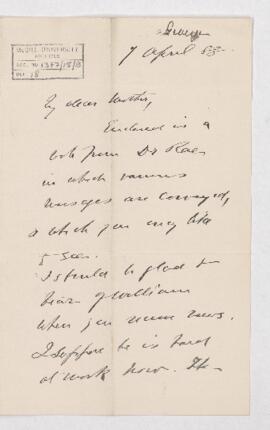 George
7 April 88.
McGILL UNIVERSITY
ARCHIVES
ACC. NO. 1377/18/8
REF. 18
My dear Mother,
Enclosed is a
note from Dr Rae
in which various
messages are conveyed,
& which you may like
to see.
I should be glad to
hear of William
when you receive news.
I suppose he is hard
at work now. The